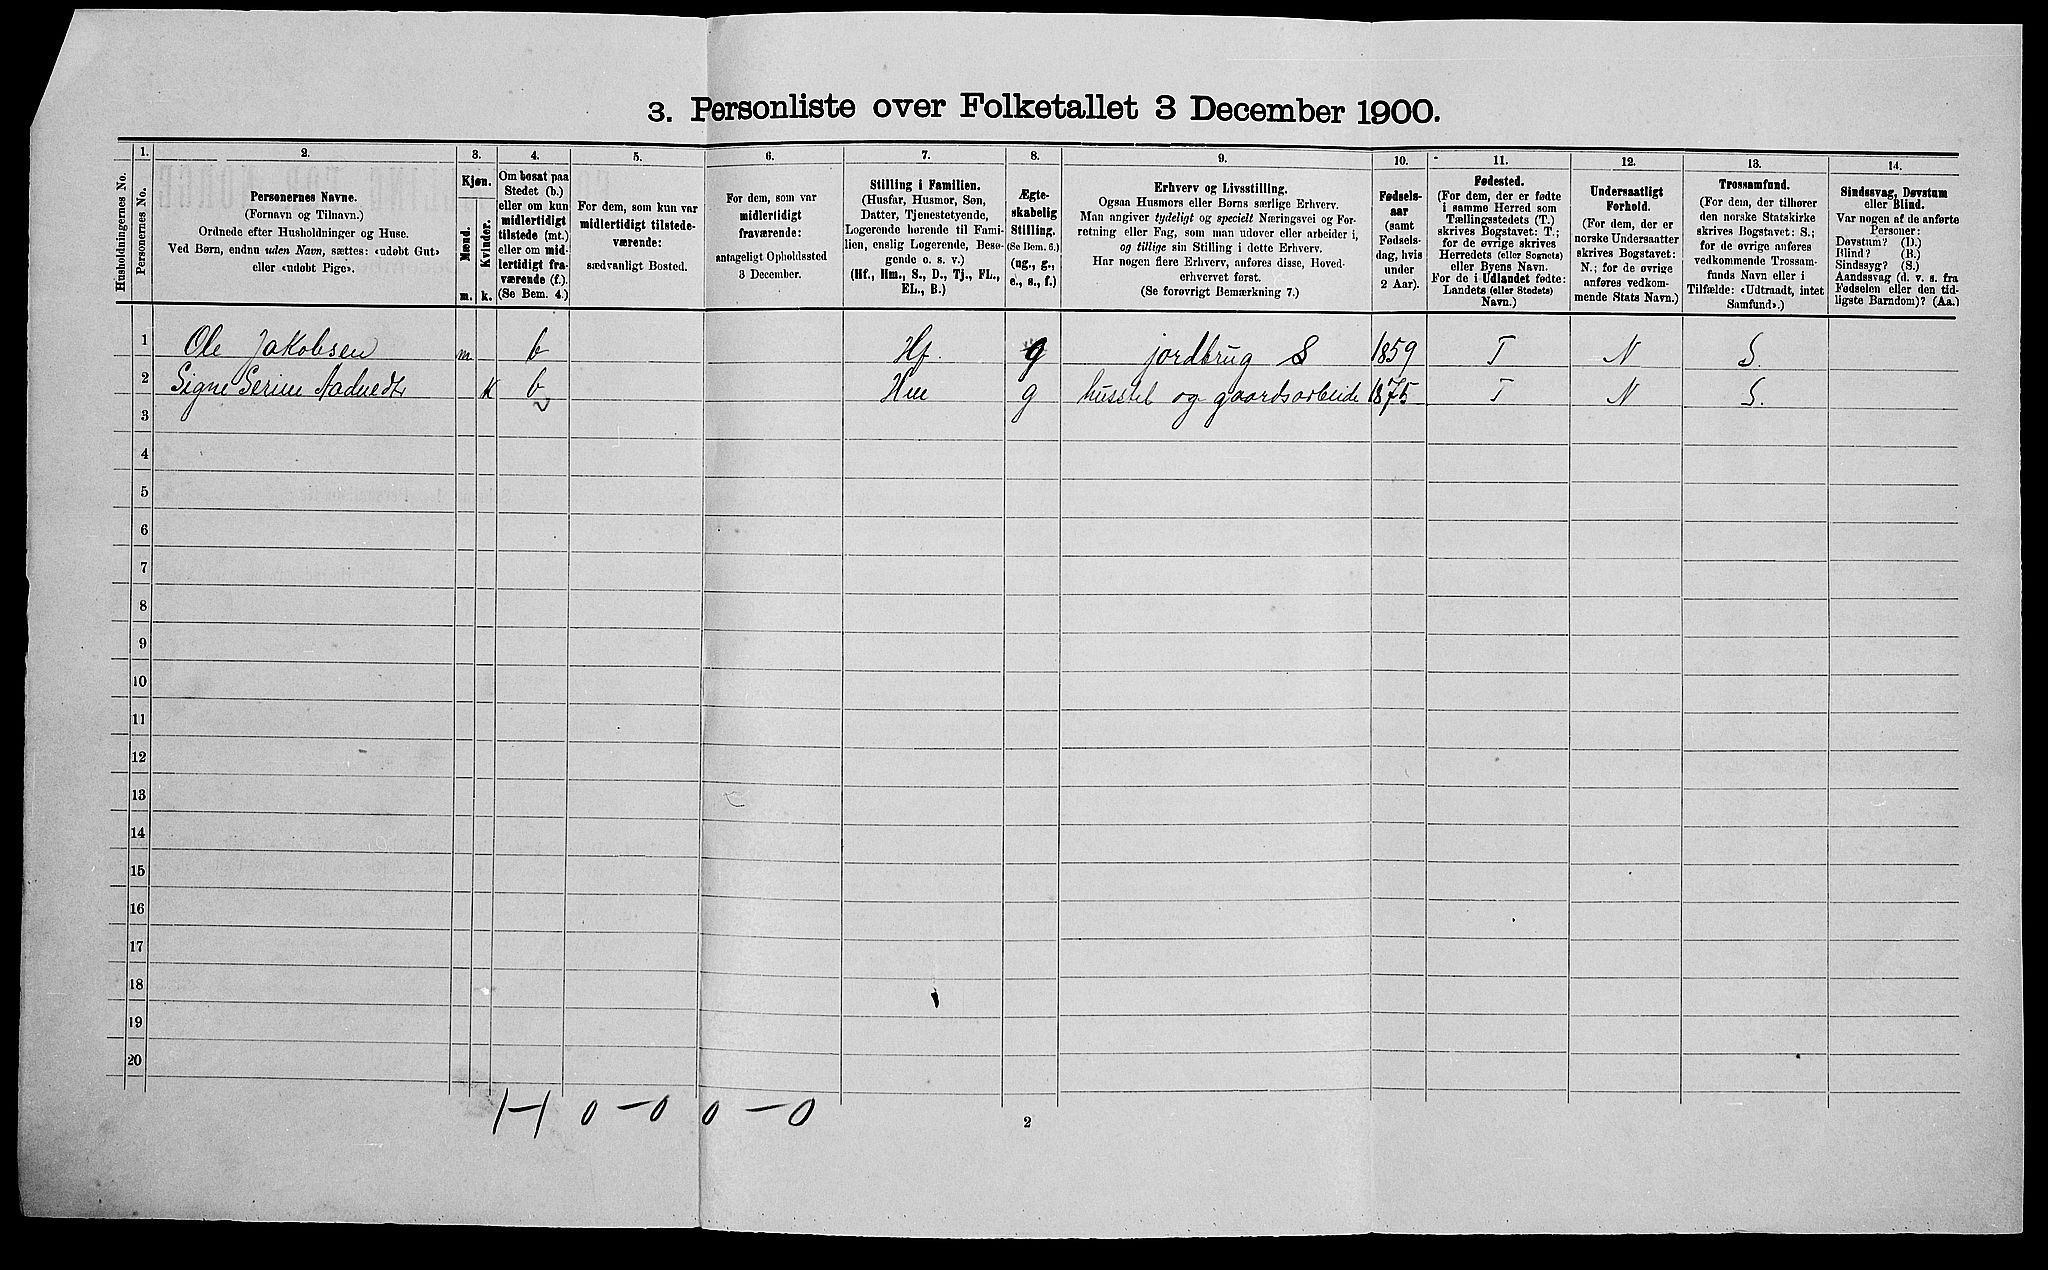 3. Personliste over Folketallet 3 December 1900.
Husholdningernes No.
1.
Personernes No.
2.
Personernes Navne.
(Fornavn og Tilnavn.)
Ordnede efter Husholdninger og Huse.
Ved Børn, endnu uden Navn, sættes: «udøbt Gut»
eller «udøbt Pige».
3.
Kjøn.
Mænd.
Kvinder.
m.
k.
4.
Om bosat paa
Stedet (b.)
eller om kun
midlertidigt
tilstede (mt.)
eller om mid-
lertidigt fra-
værende (f.).
(Se Bem. 4.)
5.
For dem, som kun var
midlertidigt tilstede-
værende:
sædvanligt Bosted.
6.
For dem, som var
midlertidigt
fraværende:
antageligt Opholdssted
3 December.
7.
Stilling i Familien.
(Husfar, Husmor, Søn,
Datter, Tjenestetyende,
Logerende hørende til Fami-
lien, enslig Logerende, Besø-
gende o. s. v.)
(Hf., Hm., S., D., Tj., FL.,
EL., B.)
8.
Ægte-
skabelig
Stilling.
(Se Bem. 6.)
(ug., g.,
e., s., f.)
9.
Erhverv og Livsstilling.
Ogsaa Husmors eller Børns særlige Erhverv.
Man angiver tydeligt og specielt Næringsvei og For-
retning eller Fag, som man udover eller arbeider i,
og tillige sin Stilling i dette Erhverv.
Har nogen flere Erhverv, anføres disse, Hoved-
erhvervet først.
(Se forøvrigt Bemærkning 7.)
10.
Fødsels-
aar
(samt
Fødsels-
dag, hvis
under
2 Aar).
11.
Fødested.
(For dem, der er fødte
i samme Herred som
Tællingsstedets (T.)
skrives Bogstavet: T.;
for de øvrige skrives
Herredets (eller Sognets)
eller Byens Navn.
For de i Udlandet fødte:
Landets (eller Stedets)
Navn.)
12.
Undersaatligt
Forhold.
(For dem, der er
norske Undersaatter
skrives Bogstavet:
N.; for de øvrige
anføres vedkom-
mende Stats Navn.)
13.
Trossamfund.
(For dem, der tilhører
den norske Statskirke
skrives Bogstavet: S.;
for de øvrige anføres
vedkommende Trossam-
funds Navn eller i
Tilfælde: «Udtraadt, intet
Samfund».)
14.
Sindssvag, Døvstum
eller Blind.
Var nogen af de anførte
Personer:
Døvstum? (D.)
Blind? (B.)
Sindssyg? (S.)
Aandssvag (d. v. s. fra
Fødselen eller den tid-
ligste Barndom)? (Aa.)
1 Ole Jakobsen m b Hf. g jordbrug S 1859 T N S.
2 Signe Serine Aadnedtr k b Hm g husstel og gaardsarbeide 1875 T N S.
3
4
5
6
7
8
9
10
11
12
13
14
15
16
17
18
19
20
1-1 0-0 0-0
2